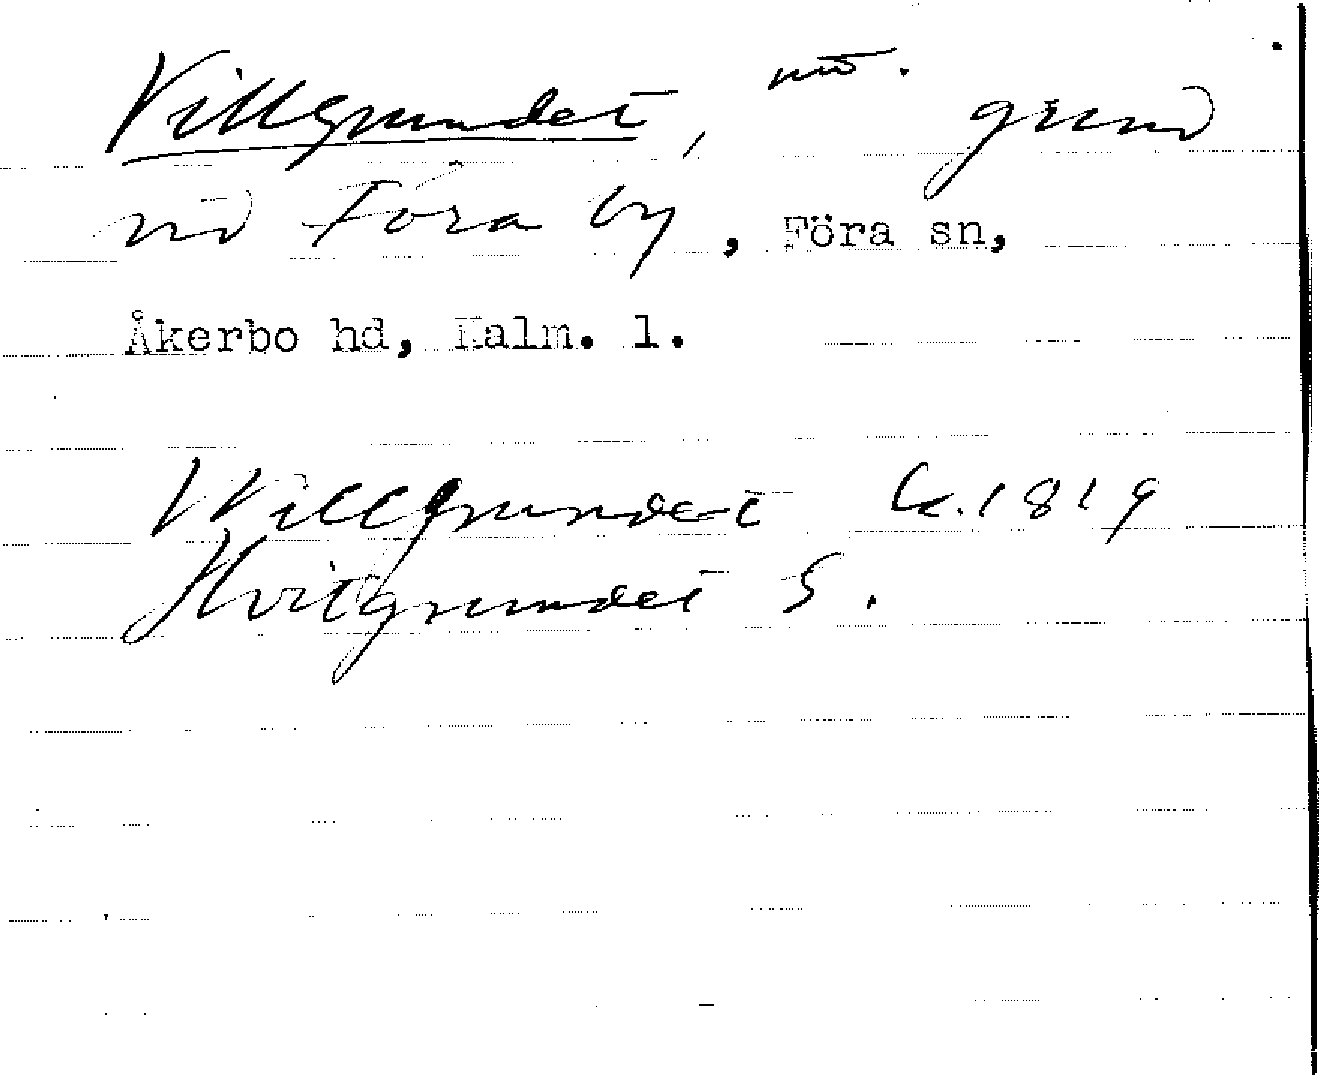 Villgrundet, grund
vid Föra by, Föra sn,
Åkerbo hd, Kalm. l.
Willgrundet Lt. 1819
Hvitgrundet S.